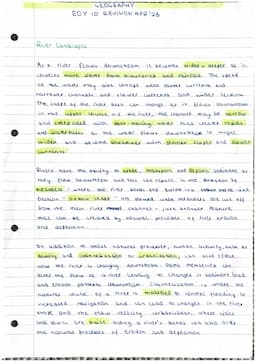 GEOGRAPHY
EOY 10 REVISION APR '23
River Landscapes
As a river flows downstream it becomes wider + deeper as it
collects more water from tributaries and rainfall. The speed
of the water may also change with faster currents and
narrower channels and slower currents and wider sections.
The shape of the river also can change as it flows downstream
in the upper course of the river, the channel may be narrow
and steep sided with fast moving water that creates rapids
and waterfalls as the water flows downstream it might
widen and become shallower with gentler slopes and slower
currents.
Rivers have the ability to erode, transport and deposit sediment as
they flow downstream and this can result in the formation of
meanders, where the river bends and curves
Erosion. Oxbow lakes are formed when meanders are cut off
from the main river channel
that can be created by natural processes of river erosion
and deposition.
In addition to these natural processes, human activity such as
and channelisation or urbanisation, can also affect
how the river is changing downstream.
alter the flow of a river leading to changes in sediment load
and erosion patterns downstream. Channelization is where the
natural course of a river is modified to control flooding or
increased navigation and can lead to changes in the river
shape and the flow velocity. Urbanisation, where cities
and towns are built along a river's banks can also alter
the natural processes of erosion and deposition.